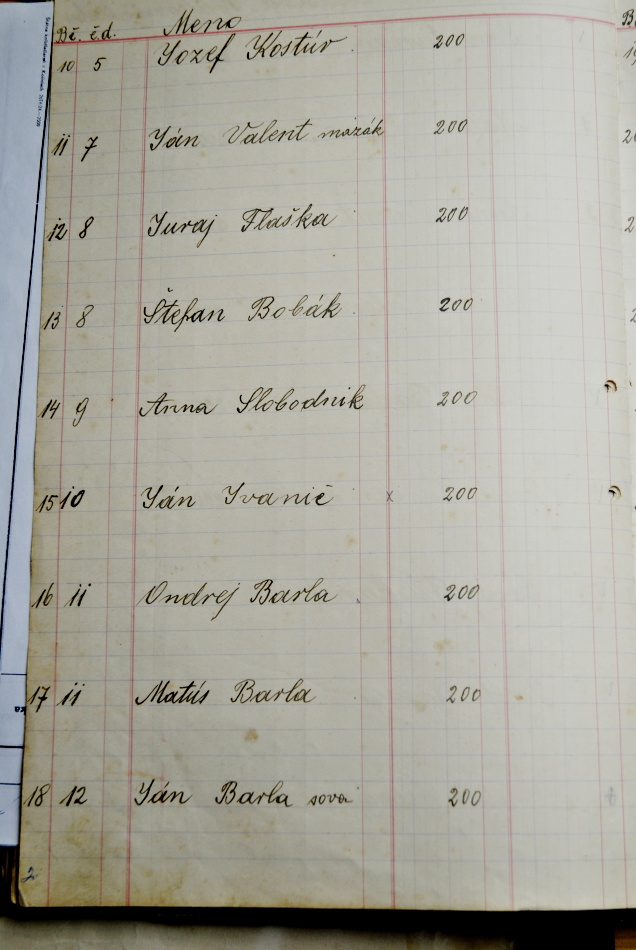 Bč. č.d. Meno
10 5 Jozef Kostúr 200
11 7 Ján Valent mazák 200
12 8 Juraj Flaška 200
13 8 Štefan Bobák 200
14 9 Anna Slobodnik 200
15 10 Ján Ivanič x 200
16 11 Ondrej Barla 200
17 11 Matús Barla 200
18 12 Ján Barla sova 200
2